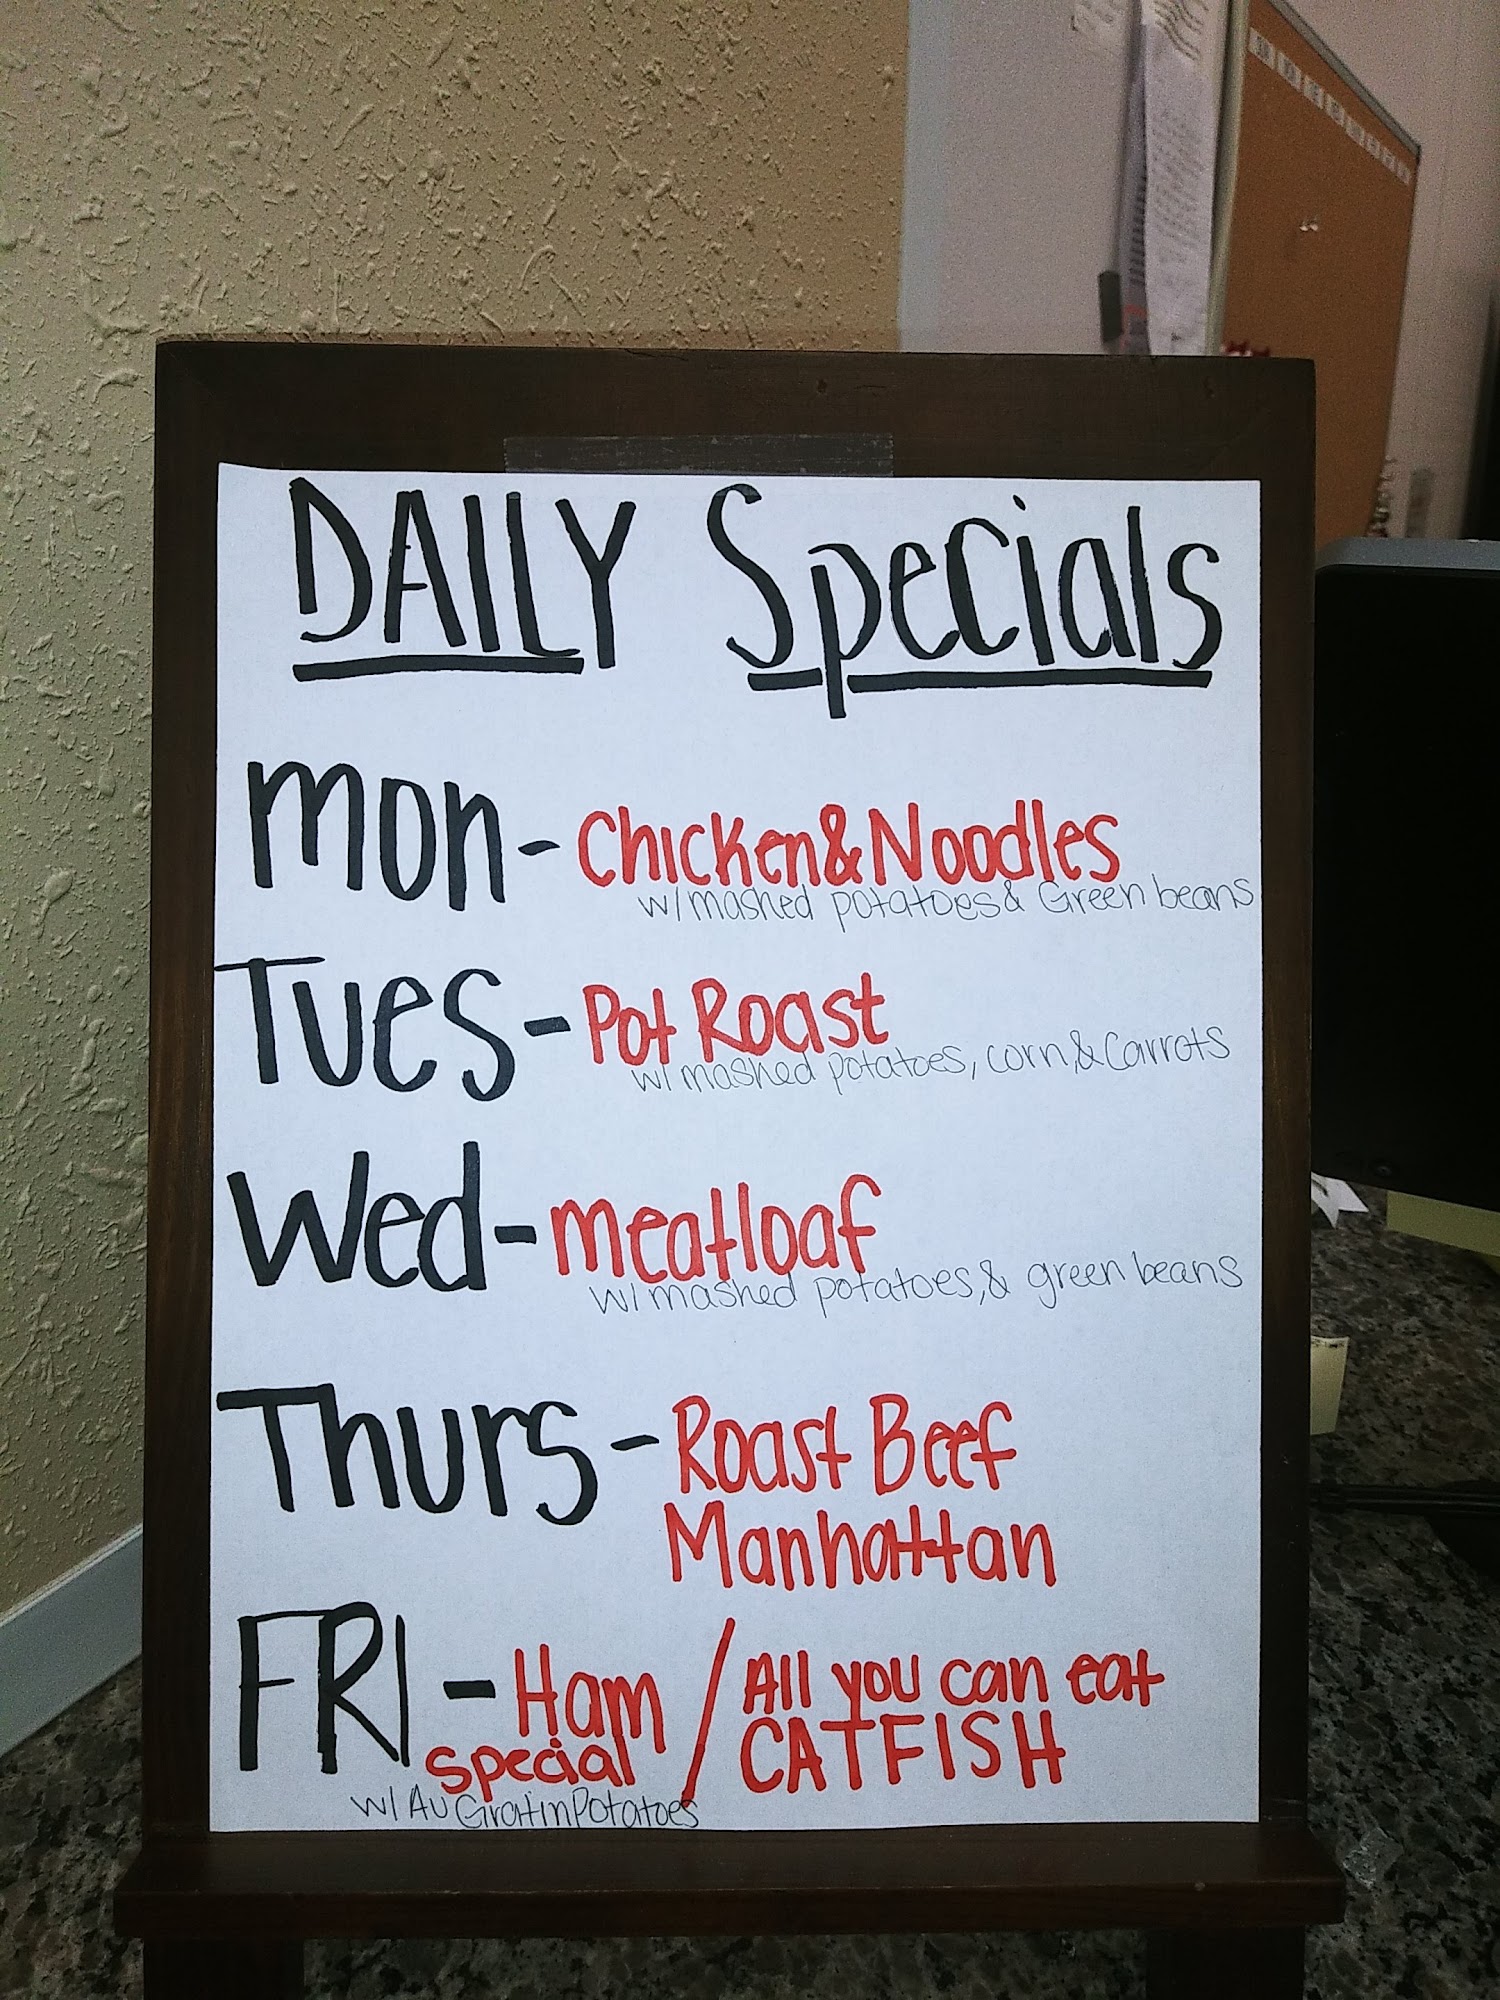 DAILY Specials
Mon - Chicken & Noodles
w/ mashed potatoes & Green beans
Tues - Pot Roast
w/ mashed potatoes, corn, & Carrots
Wed - Meatloaf
w/ mashed potatoes, & green beans
Thurs - Roast Beef
Manhattan
FRI - Ham / All you can eat
Special CATFISH
w/ Au Gratin Potatoes